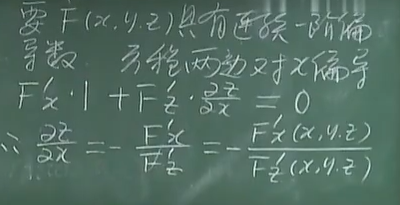 要 F(x,y,z)具有连续一阶偏
导数 方程两边对x偏导
F'x·1+F'z·∂z/∂x=0
∴ ∂z/∂x=-F'x/F'z=-F'x(x,y,z)/F'z(x,y,z)